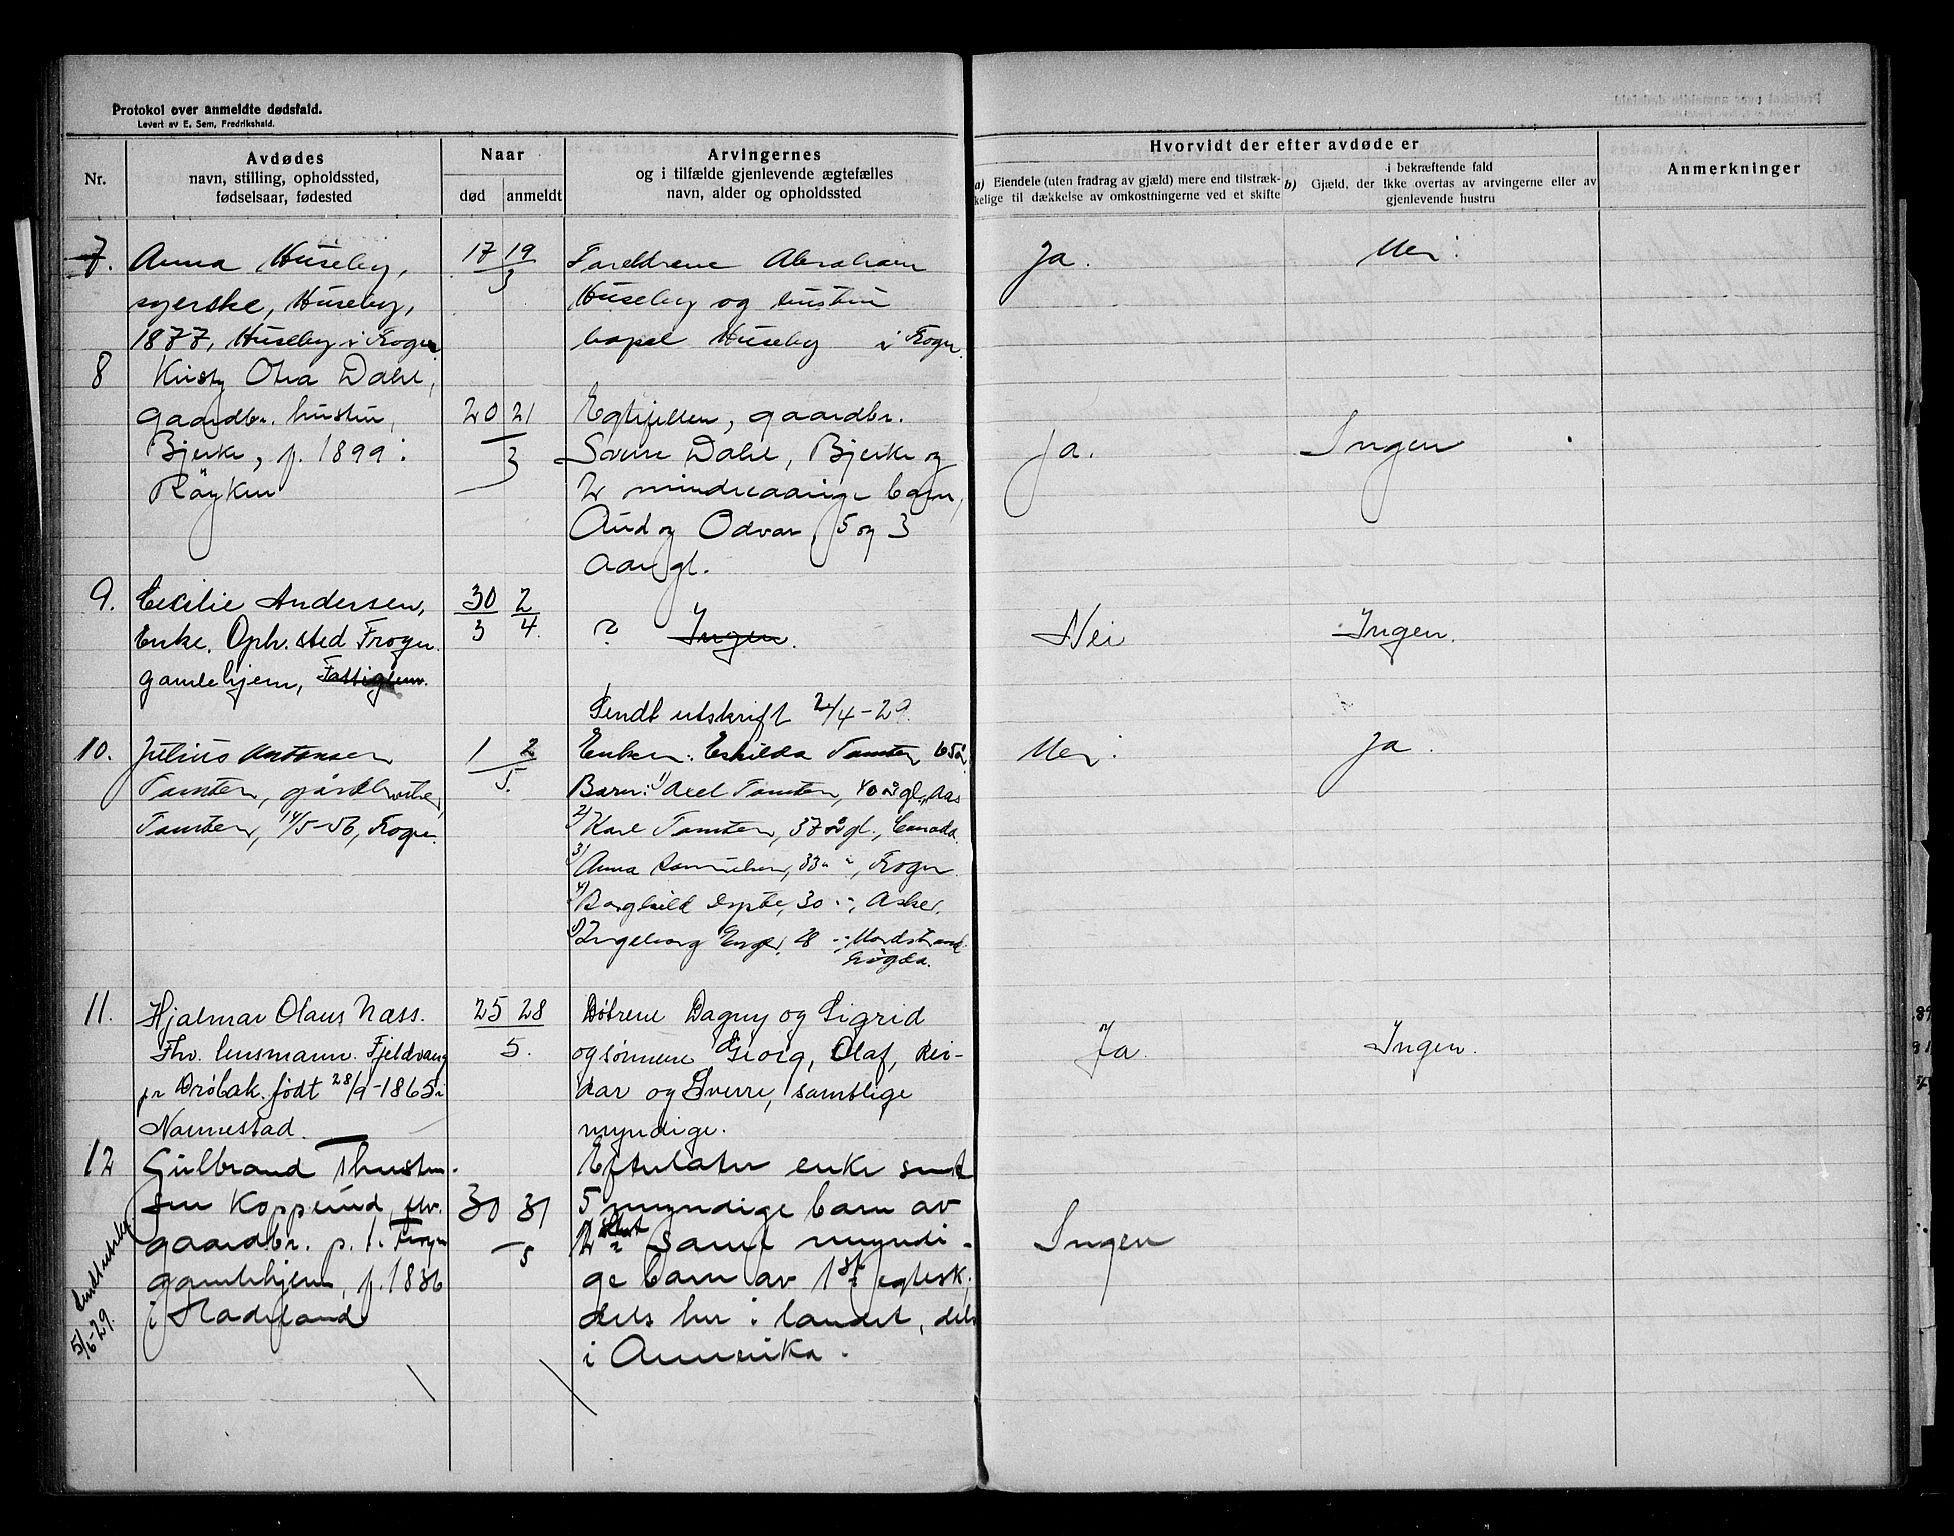 Protokol over anmeldte dødsfald.
Levert av E. Sem, Fredrikshald.
Nr.
Avdødes
navn, stilling, opholdssted,
fødselsaar, fødested
Naar
død anmeldt
Arvingernes
og i tilfælde gjenlevende ægtefælles
navn, alder og opholdssted
Hvorvidt der efter avdøde er
a) Eiendele (uten fradrag av gjæld) mere end tilstræk-
kelige til dækkelse av omkostningerne ved et skifte
b) Gjæld, der ikke overtas av arvingerne eller av
i bekræftende fald
gjenlevende hustru
Anmerkninger
7. Anna Huseby,
syerske, Huseby,
1877, Huseby i Frogn
17 19
3
Foreldrene Abraham
Huseby og hustru
Huseby i Frogn.
Ja. Nei.
8 Kirsty Olea Dahl,
gaardbr. hustru,
Bjerke, f. 1899 i
Røyken
20 21
3
Egtefellen, gaardbr.
Sverre Dahl, Bjerke og
2 mindreaarige barn,
Aud og Odvar, 5 og 3
aar gl.
Ja. Ingen
9. Cecilie Andersen,
Enke. Oph. sted Frogn
gamlehjem, Fattiglem.
30/3 2/4.
? Ingen.
Sendt utskrift 2/4-29.
Nei Ingen.
10. Julius Antonsen
Tomten, gårdbruker,
Tomten, 14/5-56, Frogn.
1 2
5.
Enken: Eskilda Tomten 65 å.
Barn: 1) Axel Tomten, 40 år gl., Aas
2) Karl Tomten, 37 år gl., Canada
3) Anna Samuelsen, 33 " ", Frogn.
4) Borghild, 30 " ", Asker.
5) Ingeborg Enger, 28 " ", Nordstrand
Nei. Ja.
11. Hjalmar Olaus Næss.
Fhv. lensmann. Fjeldvang
pr Drøbak. født 28/9-1865 i
Nannestad.
25 28
5.
Døtrene Dagny og Sigrid
og sønnene Georg, Olaf, Rei-
dar og Sverre, samtlige
myndige.
Ja. Ingen.
12 Gulbrand Thorsten-
sen Kopperud, fhv.
gaardbr. p. t. Frogn
gamlehjem, f. 1836
i Hadeland
Sendt utskr.
5/6-29.
30 31
5
Efterlater enke samt
5 myndige barn av
2 samt myndi-
ge barn av 1ste egtesk.
dels her i landet, dels
i Amerika.
Ingen